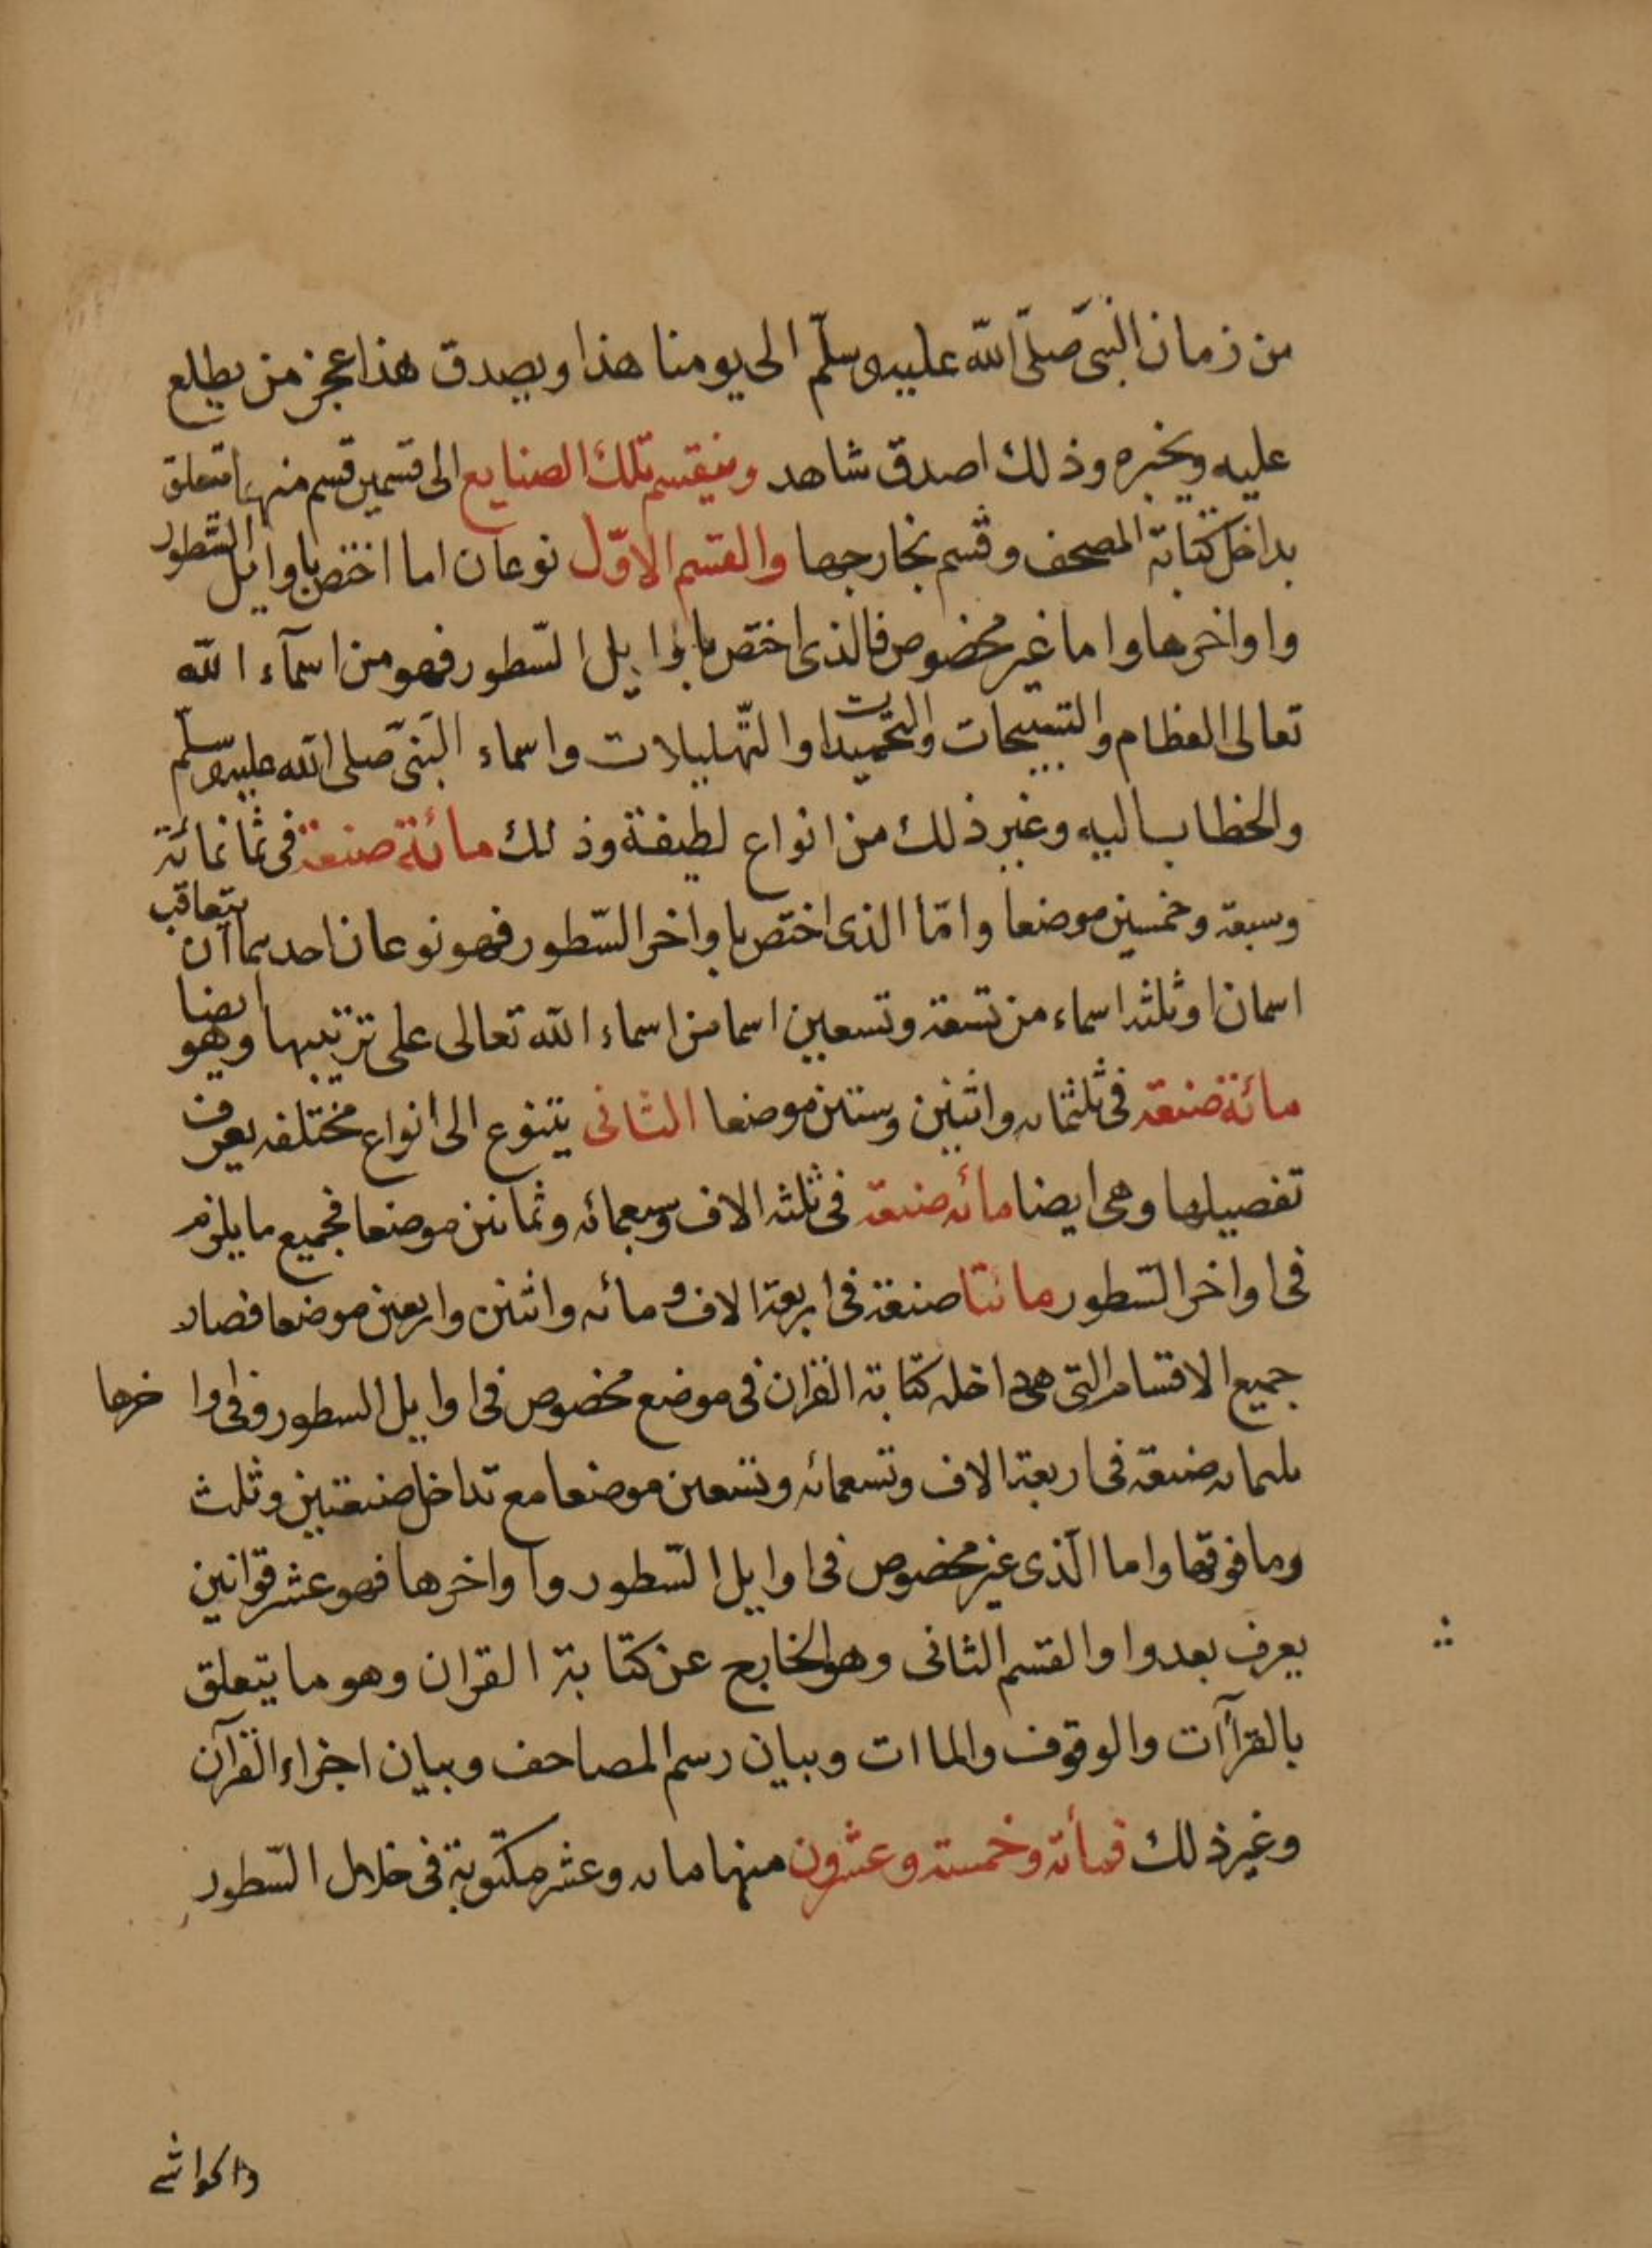 من زمان النبى صلّى الله عليه وسلّم الى يومنا هذا ويصدق هذا عجز من يطلع
عليه ويخبره وذلك اصدق شاهد وينقسم تلك الصنايع الى قسمين قسم منها متعلق
بداخل كتابة المصحف وقسم بخارجها والقسم الاوّل نوعان اما اختص باوايل السّطور
واواخرها واما غير مخصوص فالذى اختص باوايل السّطور فهو من اسمآء الله
تعالى العظام والتسبيحات والتحميدات والتّهليلات واسماء النبىّ صلى الله عليه وسلّم
والخطاب اليه وغير ذلك من انواع لطيفة وذلك مائة صنعة فى ثمانمائة
وسبعة وخمسين موضعا وامّا الذى اختص باواخر السّطور فهو نوعان احدهما ان يتعاقب
اسمان او ثلثه اسماء من تسعة وتسعين اسما من اسماء الله تعالى على ترتيبها وهو ايضا
مائة صنعة فى ثلثمائه واثنين وستين موضعا الثانى يتنوع الى انواع مختلفه يعرف
تفصيلها وهى ايضا مائه صنعة فى ثلثه الاف وسبعمائه وثمانين موضعا فجميع ما يلزم
فى اواخر السّطور مائتا صنعة فى اربعة الاف ومائه واثنين واربعين موضعا فصار
جميع الاقسام التى هى داخله كتابة القران فى موضع مخصوص فى اوايل السطور وفى اواخرها
ثلثمائه صنعة فى اربعة الاف وتسعمائه وتسعين موضعا مع تداخل صنعتين وثلث
وما فوقها واما الّذى غير مخصوص فى اوايل السّطور واواخرها فهو عشر قوانين
يعرف بعدوا والقسم الثانى وهو الخارج عن كتابة القران وهو ما يتعلق
بالقرأآت والوقوف والماات وبيان رسم المصاحف وبيان اجزاء القرآن
وغير ذلك فمأته وخمسة وعشرون منها مايه وعشر مكتوبة فى خلال السّطور
والحواشى